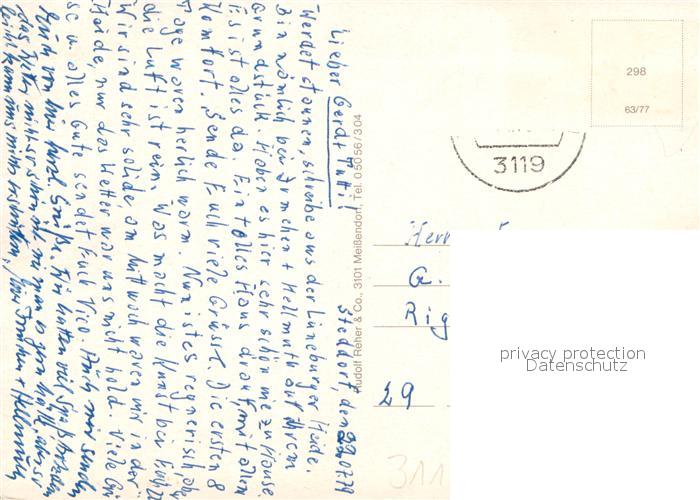 Steddorf, den 29.07.79
Lieber Gerd + Putti!
Werdet staunen, schreibe aus der Lüneburger Heide.
Bin nämlich bei Irmchen + Hellmuth auf Ihrem
Grundstück. Haben es hier sehr schön wie zu Hause.
Es ist alles da. Ein tolles Haus drauf mit allen
Komfort. Sende Euch viele Grüsse. Die ersten 8
Tage waren herlich warm. Nun ist es regnerisch, aber
die Luft ist rein. Was macht die Kunst bei Euch?
Wir sind sehr solide am Mittwoch waren wir in der
Heide, nur das Wetter war uns nicht hold. Viele Grü
se u. alles Gute sendet Euch Vico.
Auch von mir herzl. Grüße. Wir hatten viel Spaß trotzdem
das Wetter nicht so schön ist wie man es gern hätte, aber
Irmchen + Hellmuth
Rudolf Reher & Co., 3101 Meißendorf, Tel. 0 50 56 / 3 04
298
63/77
3119
Herr
G.
Rig
29
311
privacy protection
Datenschutz